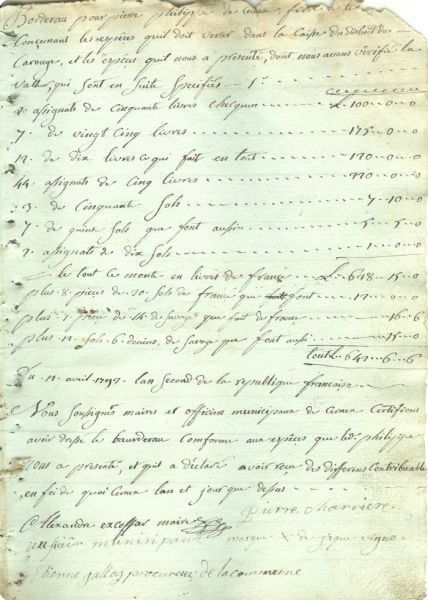 Borderau pour pierre philippe de
Concernant les espèces quil doit verser dans la Caisse du district de
Carouge, et les espèces quil nous a presente, dont nous avons vérifié la
valeur, qui sont en suite Specifiés
2 assignats de Cinquante livres chequun L. 100 - 0 - 0
7 de vingt Cinq livres 175 - 0 - 0
12 de dix livres ce qui fait en tout 120 - 0 - 0
44 assignats de Cinq livres 220 - 0 - 0
3 de Cinquante Sols 7 - 10 - 0
7 de quinze Sols que font aussi 5 - 5 - 0
2 assignats de dix Sols 1 - 0 - 0
le tout Ce monte en livres de france L. 628 - 15 - 0
plus 8 pièces de 30 Sols de france que font 12 - 0 - 0
plus 1 pièce de 14 de Savoye que fait de france 16 - 6
plus 12 Sols 6 deniers, de Savoye que font aussi 15 - 0
L. 642 - 6 - 6
Du 12 avril 1793 lan second de la republique française
Nous Soussignés maire et officiers municipaux de Certifions
avoir dressé le bourderau Comforme aux espèces que led. philippe
Nous a presenté, et quil a déclaré avoir recu des differens Contribuable
en foi de quoi lan et jour que dessus
pierre charriere
maire
munisipaux marque X de
procureur de la commeine